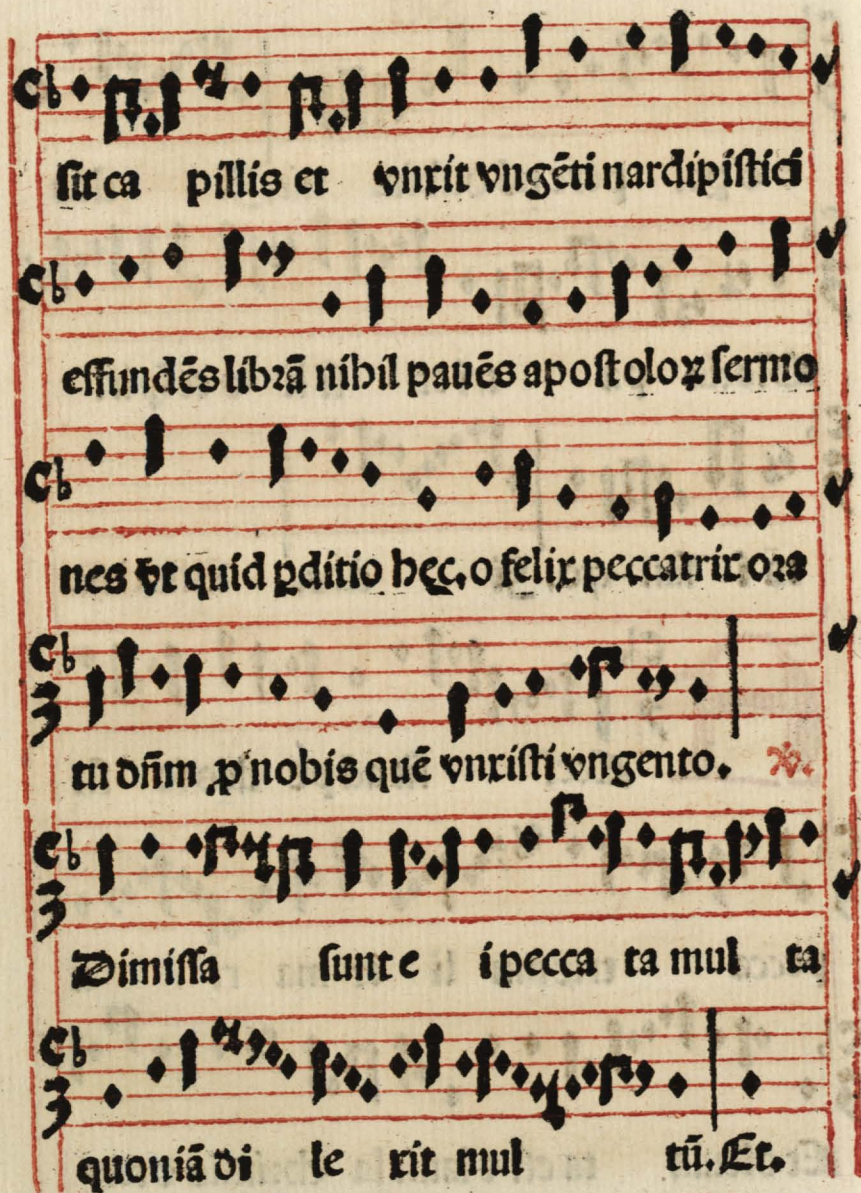 sit ca pillis et vnxit vngēti nardi pistici
effundēs librā nihil pauēs apostoloꝝ sermo
nes vt quid ꝑditio hęc. o felix peccatrix ora
tu dñm ꝓ nobis quē vnxisti vngento. ℣.
Dimissa sunt e i pecca ta mul ta
quoniā di le xit mul tū. Et.